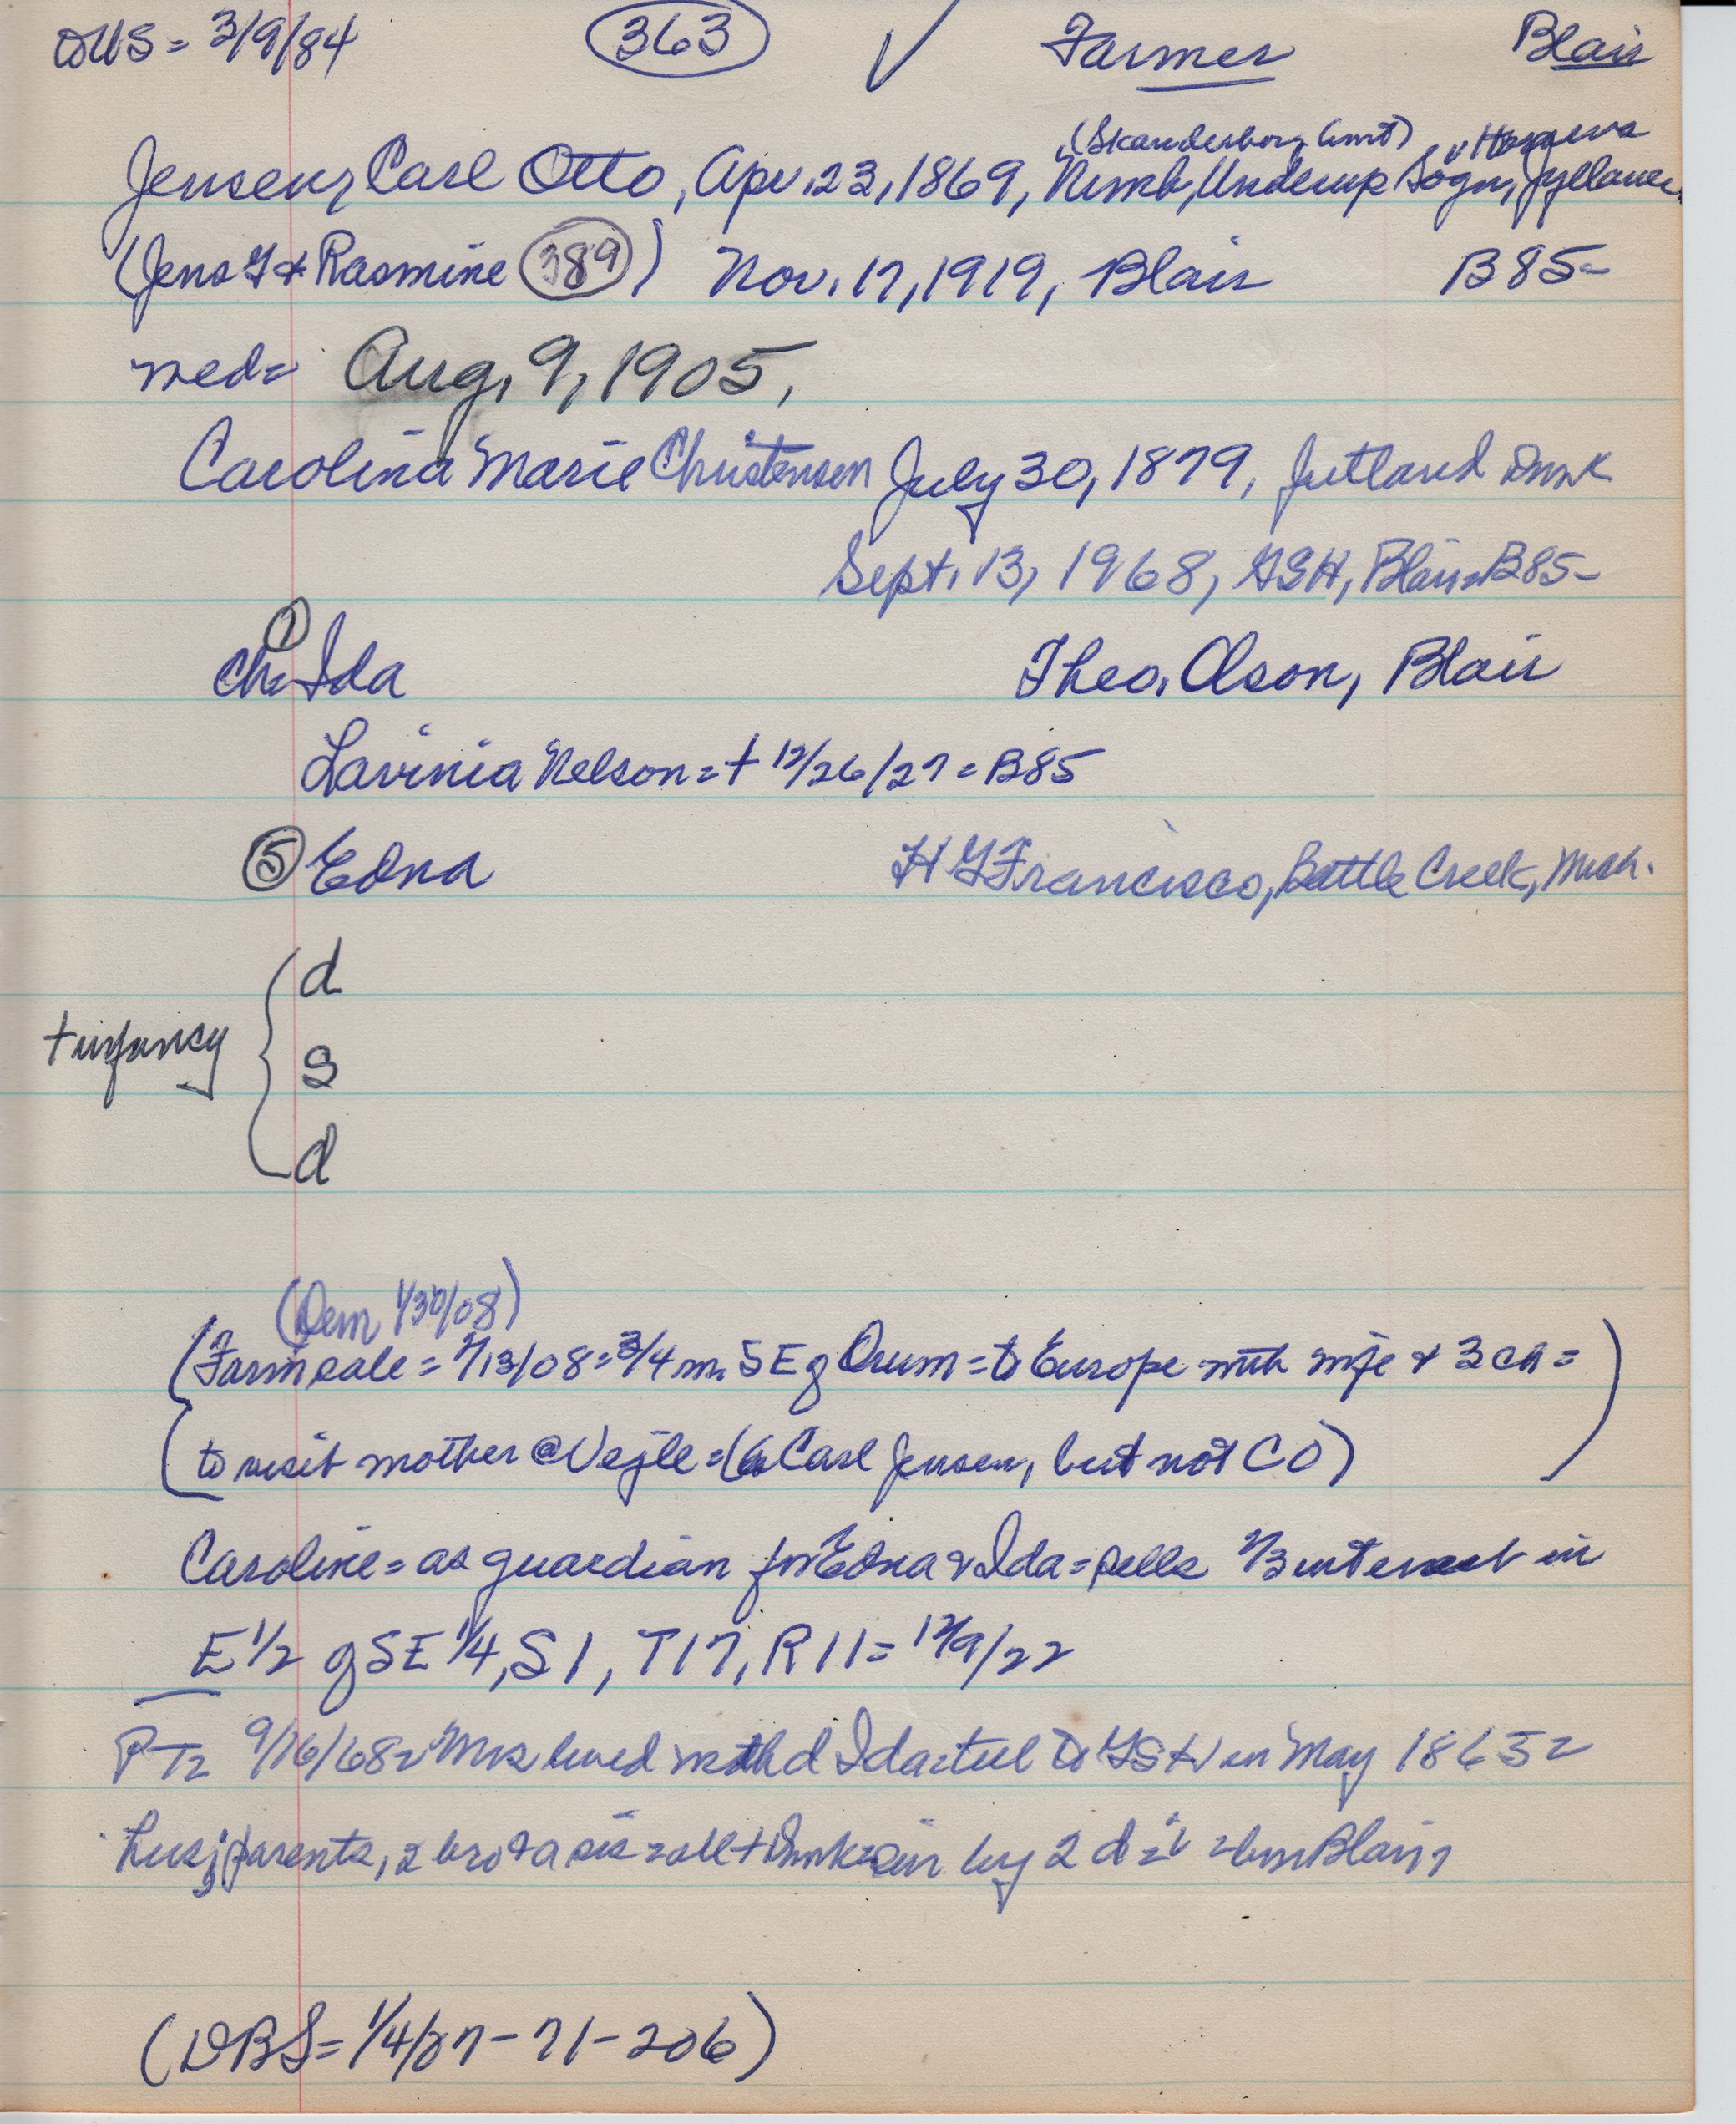 OUS = 3/9/84 363 ✓ Farmer Blair
(Skanderborg Amt)
Jensen, Carl Otto, Apr. 23, 1869, Nimb, Underup Sogn,
(Jens G + Rasmine 389) Nov. 17, 1919, Blair B85-
med= Aug. 9, 1905,
Carolina Marie Christensen July 30, 1879, Jutland Dmk
Sept. 13, 1968, GSH, Blair=B85-
ch= ① Ida Theo. Olson, Blair
Lavinia Nelson = + 12/26/27 = B85
⑤ Edna H G Francisco, Battle Creek, Mich.
d
+ infancy { s
d
(Dem 1/30/08)
(Farm sale = 2/13/08 = 3/4 m. SE of Orum = to Europe with wife + 3 ch =
to visit mother @ Vejle = (a Carl Jensen, but not CO)
Caroline = as guardian for Edna & Ida = sells 2/3 interest in
E 1/2 of SE 1/4, S1, T17, R11 = 12/9/22
PT= 9/16/68= Mrs lived with d Ida till to GSH in May 1865=
Hus; parents, 2 bro + a sis = all + Dmk = sur by 2 d = = bm Blair,
(DBS = 1/4/27-71-206)